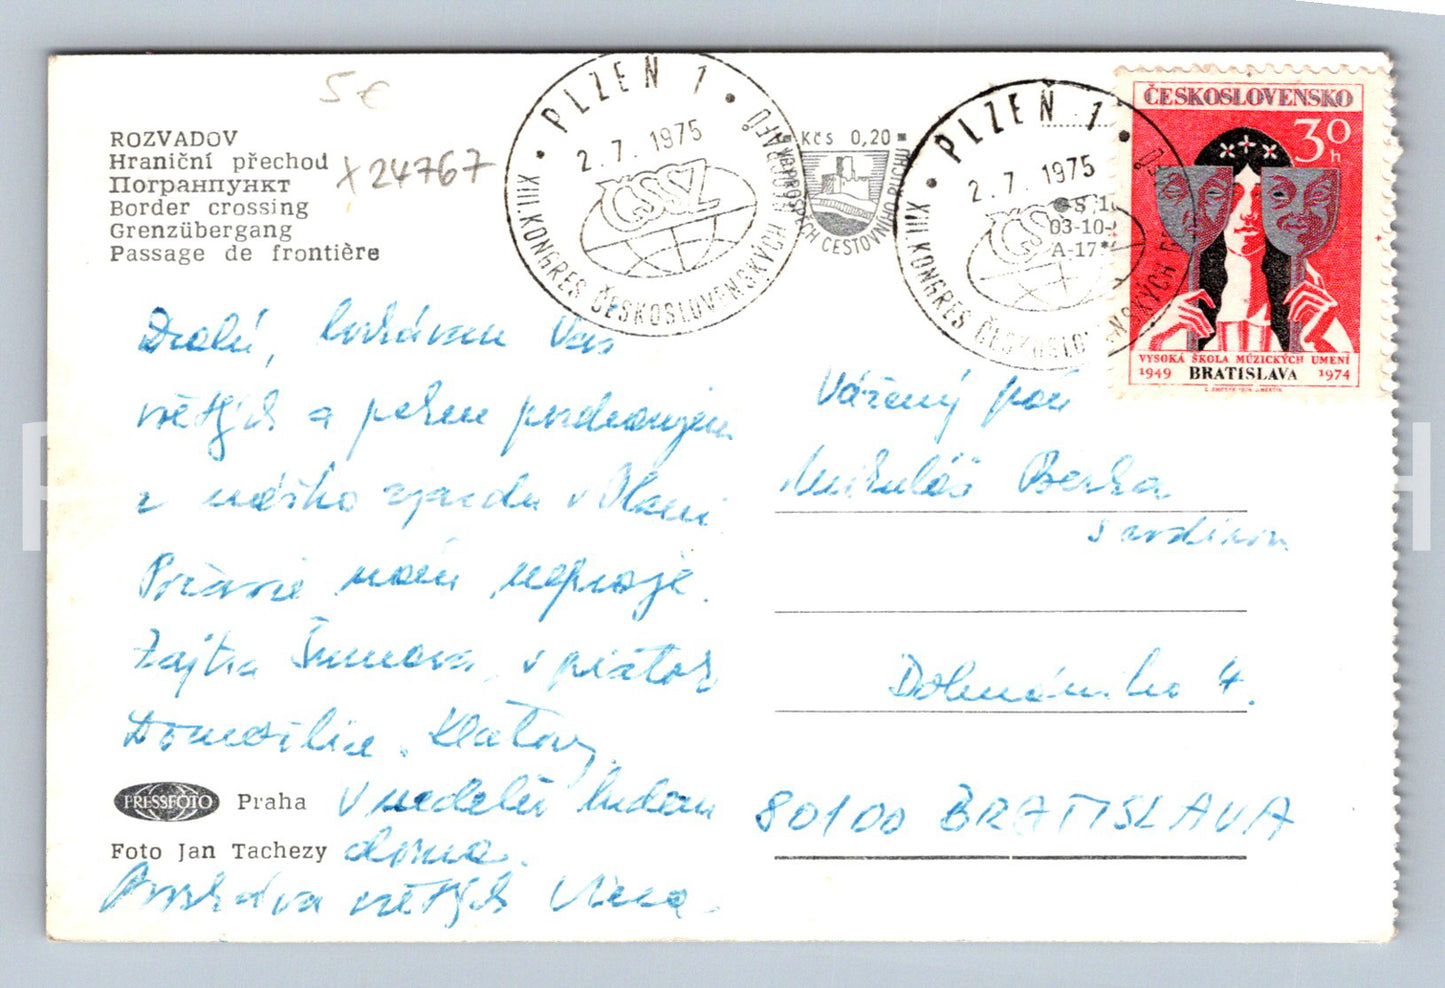 5 €
ROZVADOV
Hraniční přechod
Погранпункт
Border crossing
Grenzübergang
Passage de frontière
X24767
PLZEŇ 1
2.7.1975
ČSSZ
XIII. KONGRES ČESKOSLOVENSKÝCH
Kčs 0,20
CESTOVNÍHO RUCHU
PLZEŇ 1
2.7.1975
XIII. KONGRES ČESKOSLOVENSKÝCH
03-10-
A-17*
ČESKOSLOVENSKO
30h
VYSOKÁ ŠKOLA MÚZICKÝCH UMENÍ
1949 BRATISLAVA 1974
Drahí, bozkávam Vás
všetkých a pekne pozdravujem
z nášho zjazdu v Plzni.
Počasie nám nepraje.
Zajtra Šumava, v piatok
Domažlice, Klatovy,
V nedeľu budem
doma.
Bozkáva všetkých
PRESSFOTO Praha
Foto Jan Tachezy
Vážený pán
Mikuláš
4.
80100 BRATISLAVA